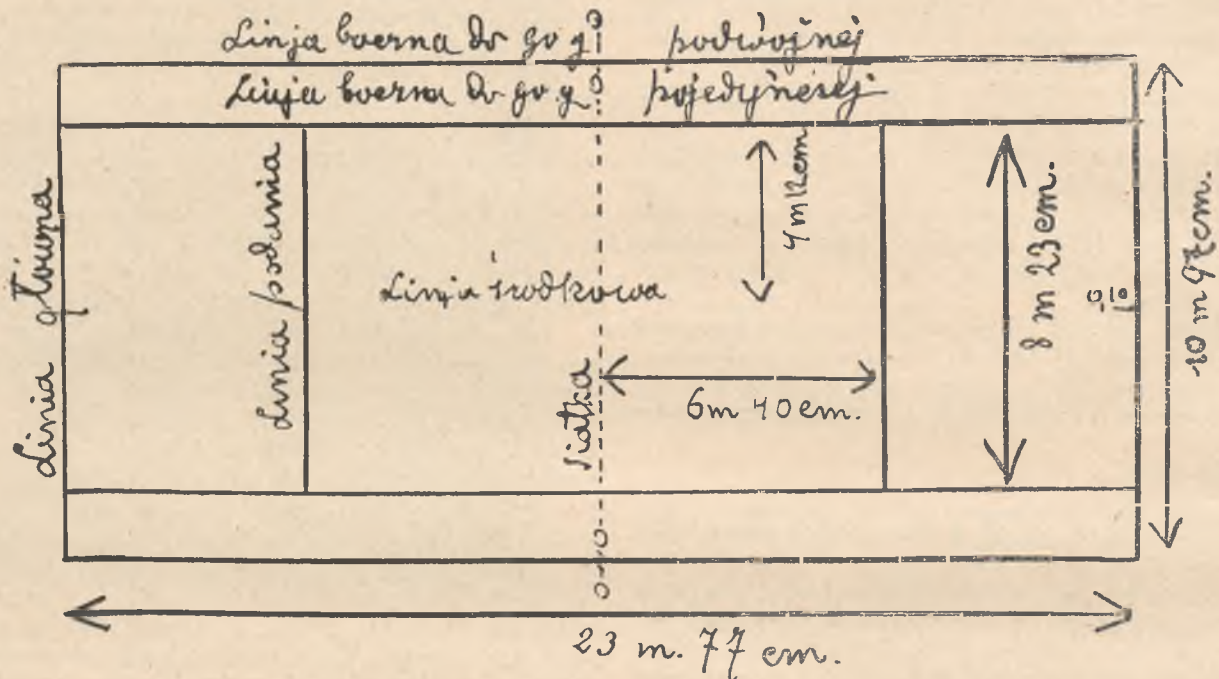 Linja boczna do gry podwójnej
Linja boczna do gry pojedyńczej
Linia główna
Linia podania
Linja środkowa
4 m 12 cm
8 m 23 cm.
10 m 97 cm.
0,10
siatka
6 m 40 cm.
23 m. 77 cm.